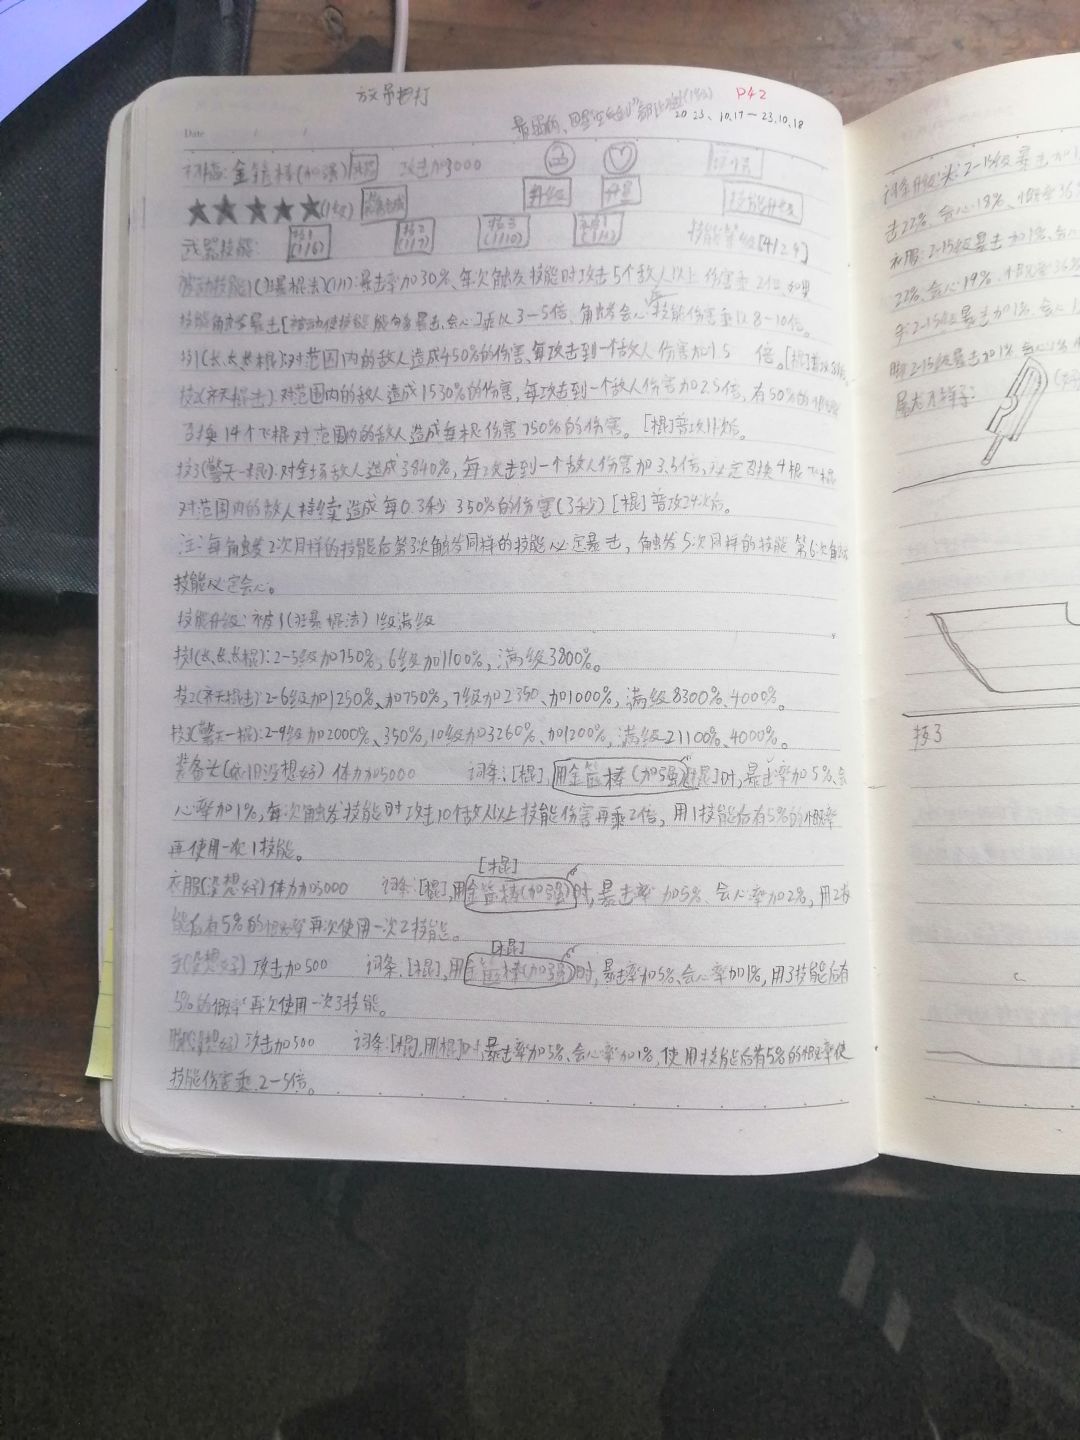 P42
2023、10.17-23.10.18
Date
金箍棒(加强) 攻击加3000
升级 升星
(1级)
武器技能: 技1(1/6) 技2(1/7) 技3(1/10) 技能等级[4/24]
被动技能1(狂暴棍法)(1/1):暴击率加30%、每次触发技能时攻击5个敌人以上伤害乘2倍、如果
技能触发暴击[被动使技能能够暴击、会心]乘以3-5倍、触发会心技能伤害乘以8-10倍。
技1(长、长、长棍):对范围内的敌人造成450%的伤害、每攻击到一个敌人伤害加1.5倍。[棍]普攻
技2(齐天棍击):对范围内的敌人造成1530%的伤害,每攻击到一个敌人伤害加2.5倍,有50%的概率
召换14个飞棍对范围内的敌人造成每棍伤害750%的伤害。[棍]普攻
技3(擎天一棍):对全场敌人造成3840%,每攻击到一个敌人伤害加3.5倍,必定召换4棍飞棍
对范围内的敌人持续造成每0.3秒350%的伤害(3秒)[棍]普攻24次后。
注:每触发2次同样的技能后第3次触发同样的技能必定暴击,触发5次同样的技能第6次触发
技能必定会心。
技能升级:被1(狂暴棍法)1级满级
技1(长、长、长棍):2-5级加750%,6级加1100%,满级3800%。
技2(齐天棍击):2-6级加1250%、加750%,7级加2350、加1000%,满级8300%、4000%。
技3(擎天一棍):2-9级加2000%、350%,10级加3260%、加1200%,满级21100%、4000%。
装备头(依旧没想好)体力加5000 词条:[棍],用金箍棒(加强)[棍]时,暴击率加5%、会
心率加1%,每次触发技能时攻击10个敌人以上技能伤害再乘2倍,用1技能后有5%的概率
再使用一次1技能。
[棍]
衣服(没想好)体力加5000 词条:[棍],用金箍棒(加强)时,暴击率加5%、会心率加2%,用2技
能后有5%的概率再次使用一次2技能。
[棍]
手(没想好)攻击加500 词条:[棍],用金箍棒(加强)时,暴击率加5%、会心率加1%,用3技能后有
5%的概率再次使用一次3技能。
脚(没想好)攻击加500 词条:[棍],用[棍]时,暴击率加5%、会心率加1%,使用技能后有5%的概率使
技能伤害乘2-5倍。
词条升级:头:2-15级暴击加1
击22%、会心18%、概率36
衣服:2-15级暴击加1%、会心
22%、会心19%、概率36%
手:2-15级暴击加1%、会心1
脚:2-15级暴击加1%、会心1%
尾大不样子:
技3